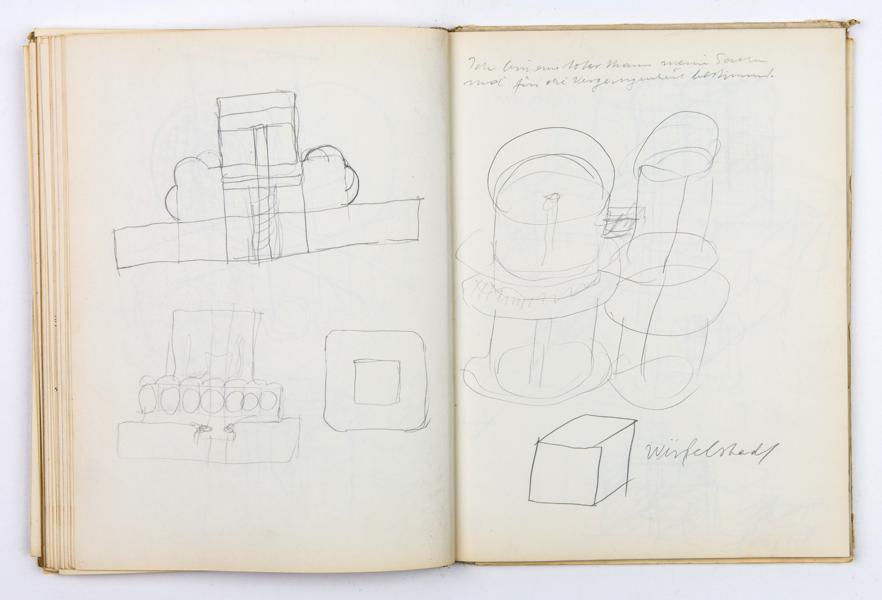 Ich bin eine toter Mann meine Sachen
sind für die Vergangenheit bestimmt.
Würfelstadt